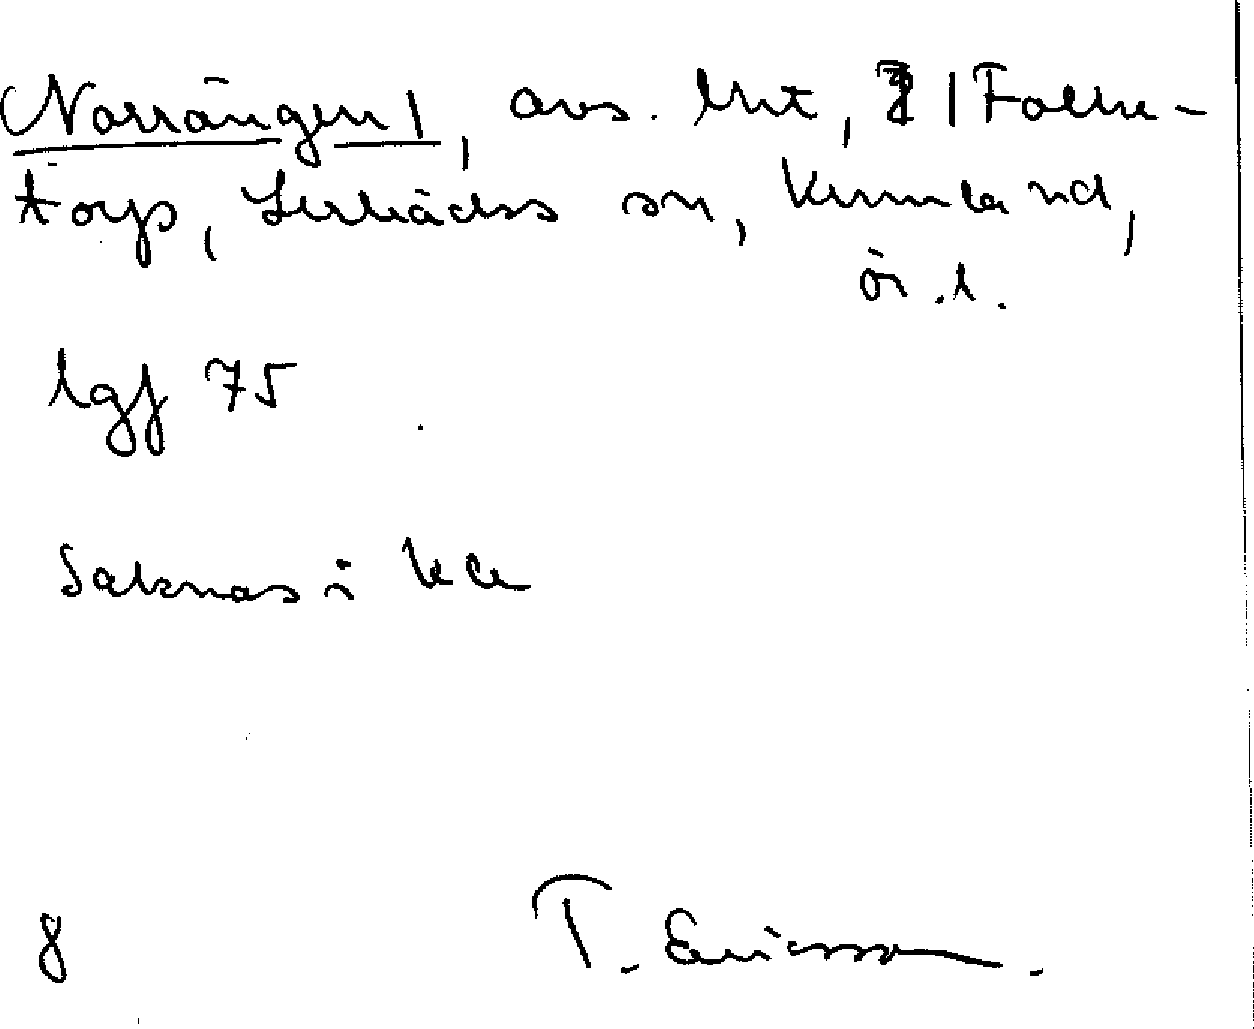 Norrängen 1, avs. lht, 1 Folke-
torp, Lerbäcks sn, Kumla hd,
Ör. l.
lgf 75
Saknas i
8
T. Ericsson.